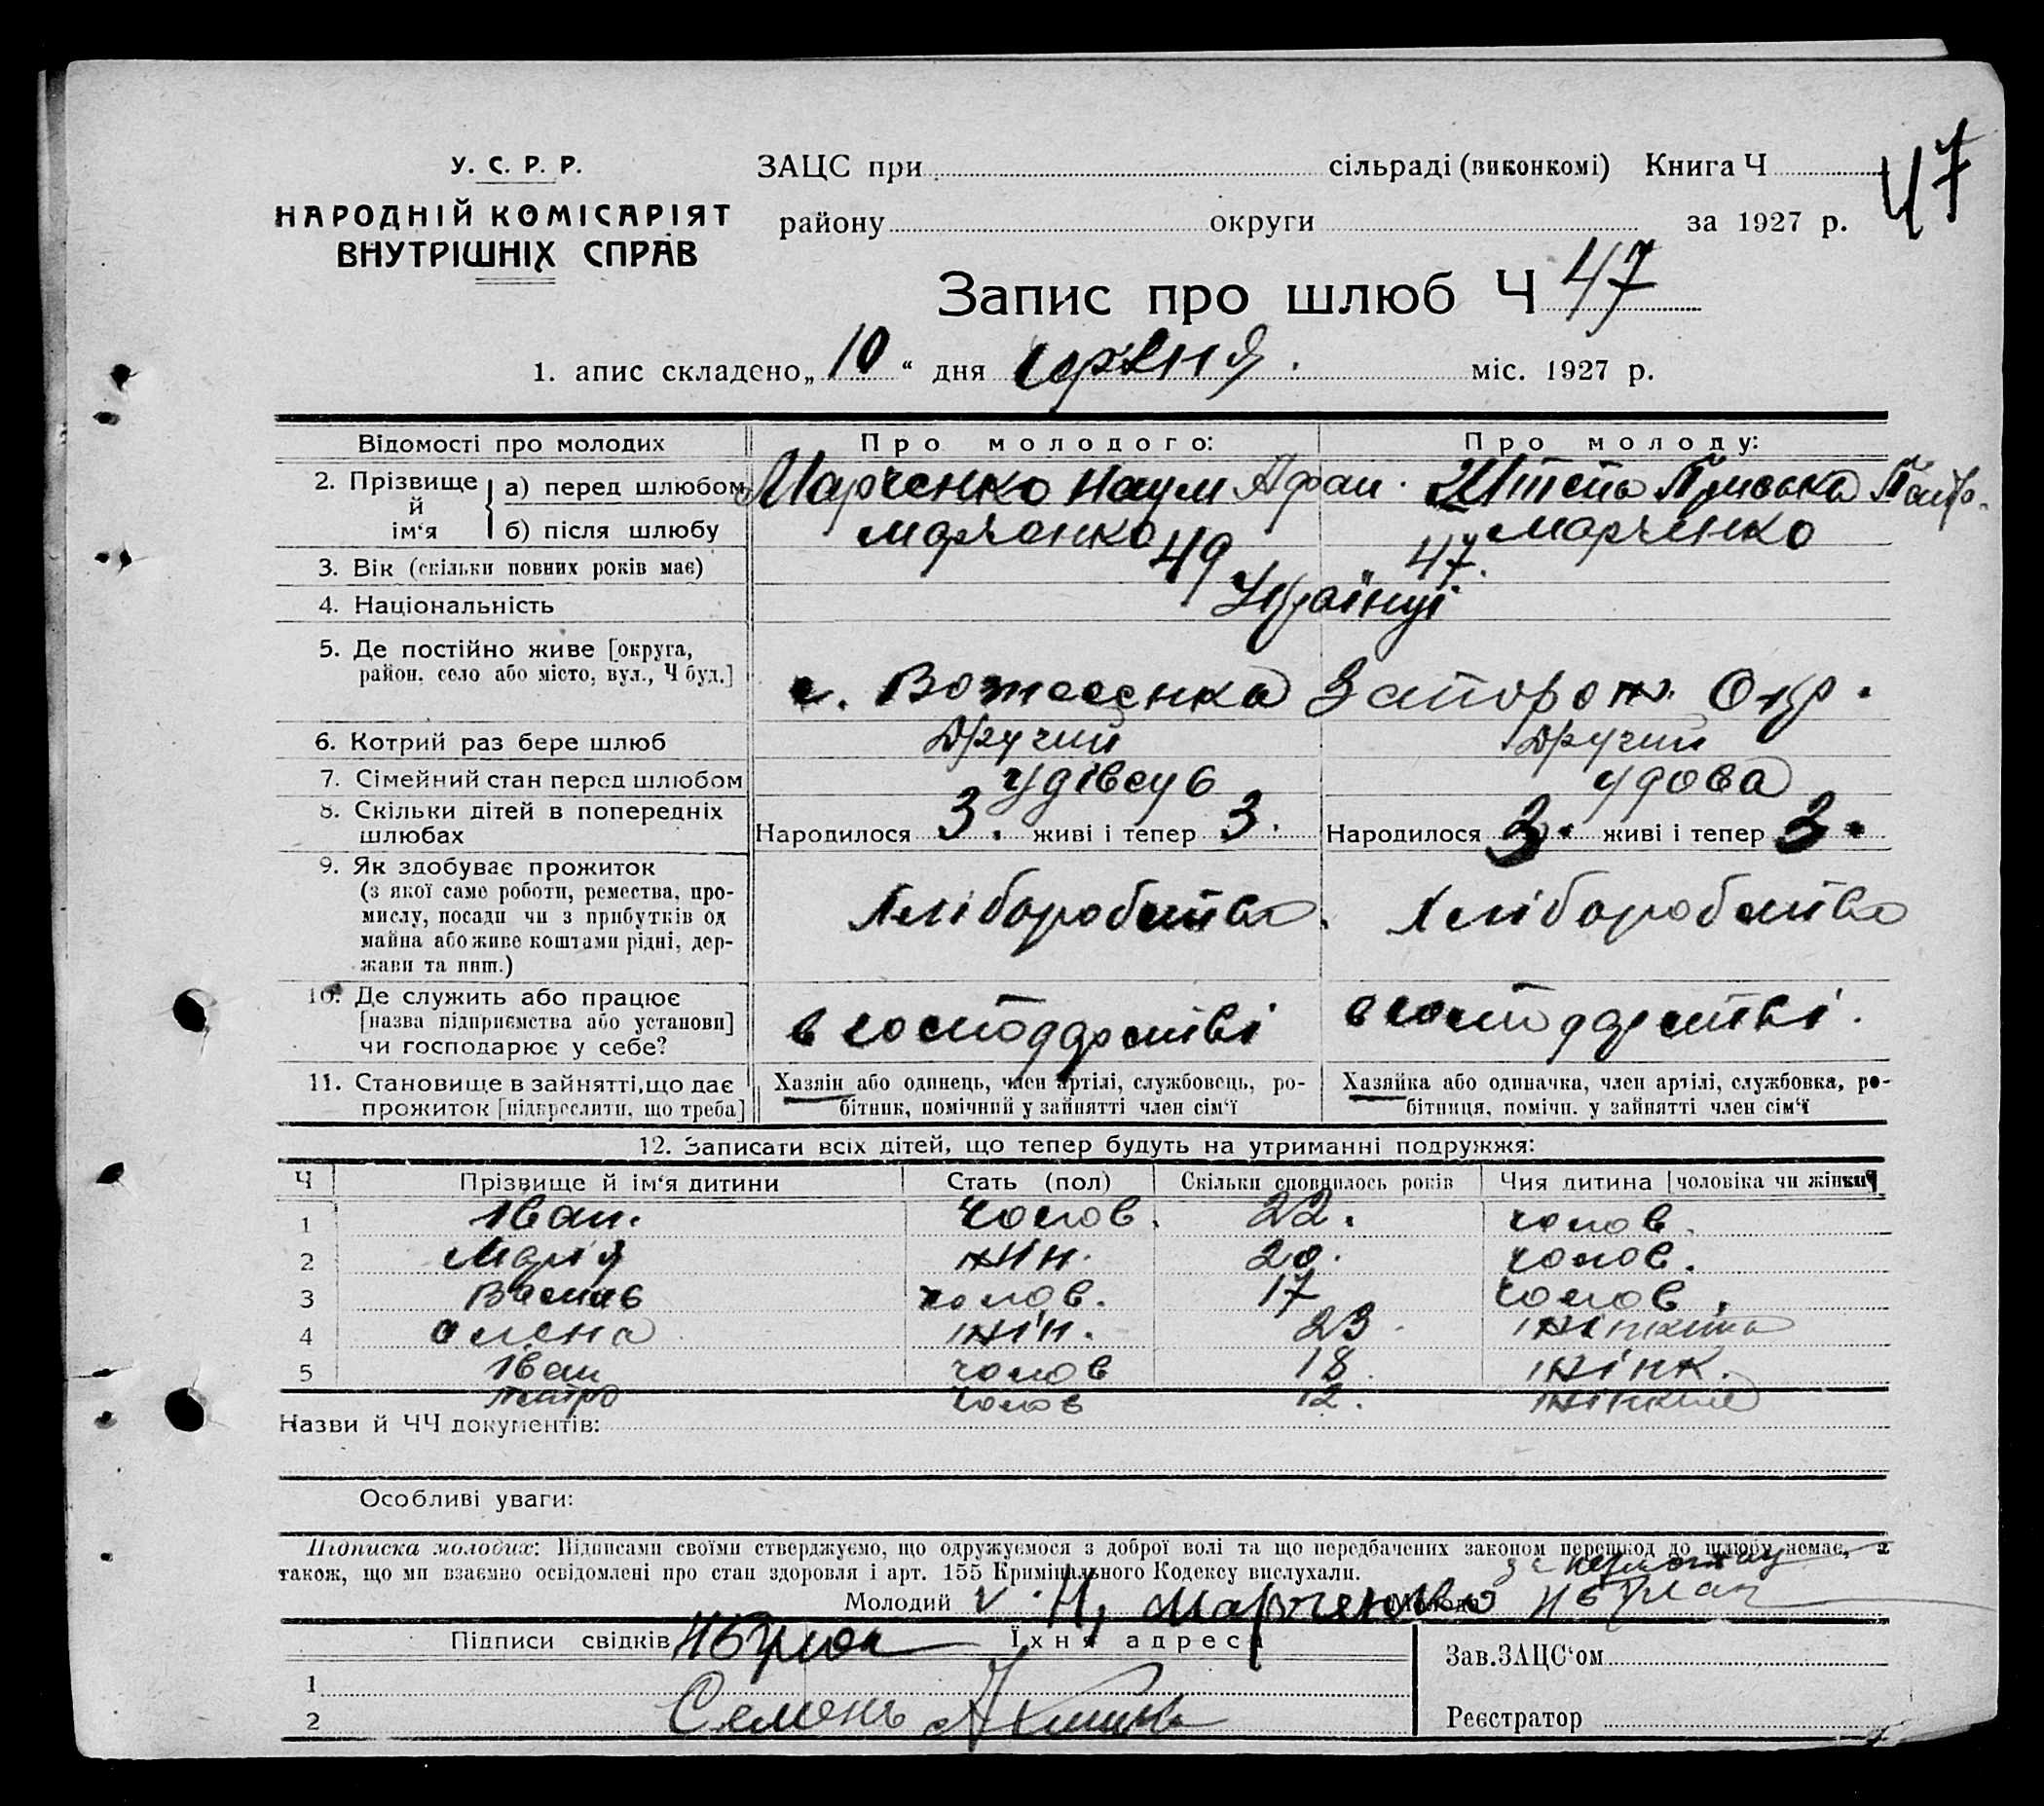 У. С. Р. Р.
НАРОДНІЙ КОМІСАРІЯТ
ВНУТРІШНІХ СПРАВ
ЗАЦС при сільраді (виконкомі) Книга Ч 47
району округи за 1927 р.
Запис про шлюб Ч 47
1. апис складено „10“ дня міс. 1927 р.
Відомості про молодих Про молодого: Про молоду:
2. Прізвище й ім‘я
а) перед шлюбом Марченко Наум Афан. Пріська
б) після шлюбу Марченко Марченко
3. Вік (скільки повних років має) 49 47.
4. Національність Українці
5. Де постійно живе [округа,
район, село або місто, вул., Ч буд.]
с. Вознесенка Запорож. Окр.
6. Котрий раз бере шлюб Другий Другий
7. Сімейний стан перед шлюбом удівець удова
8. Скільки дітей в попередніх
шлюбах
Народилося 3. живі і тепер 3. Народилося 3. живі і тепер 3.
9. Як здобуває прожиток
(з якої саме роботи, ремества, про-
мислу, посади чи з прибутків од
майна або живе коштами рідні, дер-
жави та инш.)
Хліборобство. Хліборобство
10. Де служить або працює
[назва підприємства або установи]
чи господарює у себе?
в господарстві в господарстві.
11. Становище в зайнятті, що дає
прожиток [підкреслити, що треба]
Хазяїн або одинець, член артілі, службовець, ро-
бітник, помічний у зайнятті член сім‘ї
Хазяйка або одиначка, член артілі, службовка, ро-
бітниця, помічн. у зайнятті член сім‘ї
12. Записати всіх дітей, що тепер будуть на утриманні подружжя:
Ч Прізвище й ім‘я дитини Стать (пол) Скільки сповнилось років Чия дитина [чоловіка чи жінки]
1 Іван. чолов. 22. чолов.
2 Марія жін. 20. чолов.
3 Василь чолов. 17 чолов.
4 Олена жін. 23 жінкина
5 Іван чолов 18. жінк.
Петро чолов 12. жінкин
Назви й ЧЧ документів:
Особливі уваги:
Підписка молодих: Підписами своїми стверджуємо, що одружуємося з доброї волі та що передбачених законом перешкод до шлюбу немає, а
також, що ми взаємно освідомлені про стан здоров‘я і арт. 155 Кримінального Кодексу вислухали.
Молодий Н, Марченко Молода
Підписи свідків Їхня адреса
1
2 Семенъ
Зав. ЗАЦС‘ом
Реєстратор